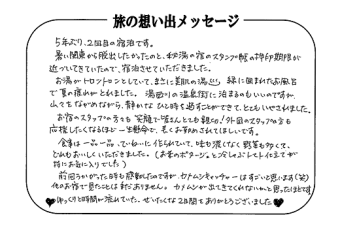 旅の想い出メッセージ
5年ぶり、2回目の宿泊です。
暑い関東から脱出したかったのと、秘湯の宿のスタンプ帳の期限が
近づいてきていたので、宿泊させていただきました。
お湯がトロントロンとしていて、まさに美肌の湯。緑に囲まれたお風呂
で夏の疲れがとれました。湯巡りの温泉街に泊まるのもいいのですが、
山々をながめながら、静かなひと時を過ごすことができて、とてもいやされました。
お宿のスタッフの方も笑顔で皆さんとても親切!外国のスタッフの方も
応援したくなるほど一生懸命で、長くお勤めされてほしいです。
食事は一品一品、ていねいに作られていて、味も濃くなく野菜も多くて、
どれもおいしくいただきました。(お米のポタージュと冷しゃぶトマト仕立てが
特にお気に入りでした。)
前回うかがった時も感動したのですが、カトムシキャッチャーはすごいと思います(笑)
他のお宿で見たことはまだありません。カトムシが出てきてくれないかと思ったほどです
ゆっくりと時間が流れていた、ぜいたくな2日間をありがとうございました